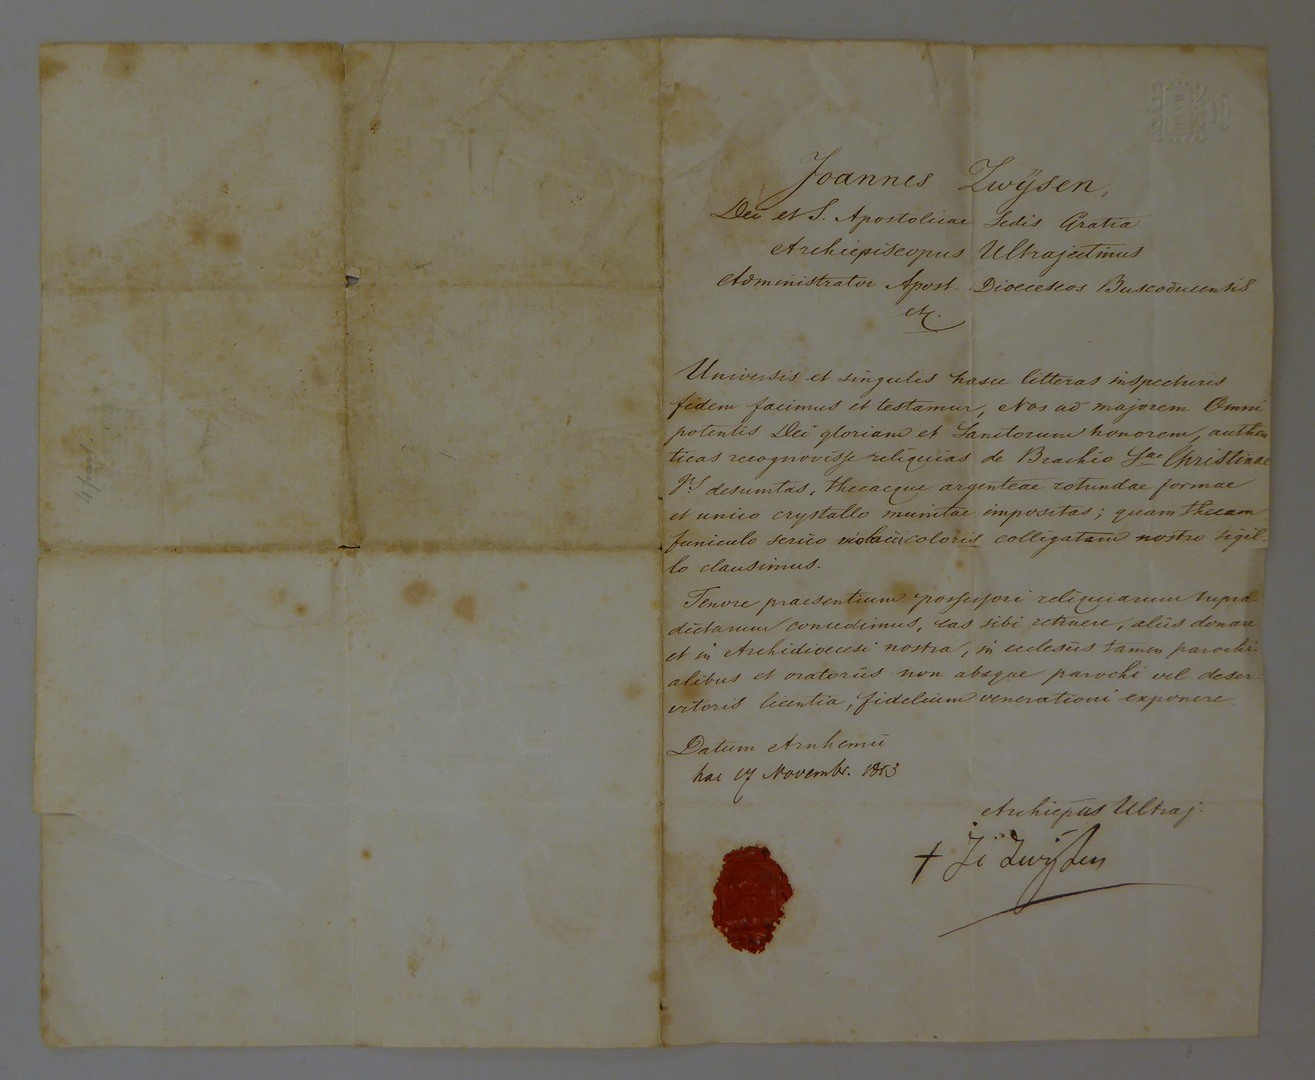 Joannes Zwÿsen,
Dei et S. Apostolicae Sedis Gratia
Archiepiscopus Ultrajectinus
Administrator Apost. Dioeceseos Buscoducensis
etc.
Universis et singulis hasce litteras inspecturis
fidem facimus et testamur, Nos ad majorem Omni
potentis Dei gloriam et Sanctorum honorem, authen
ticas recognovisse reliquias de Brachio Stae Christinae
Vs desumtas, thecaeque argenteae rotundae formae
et unico crystallo munitae impositas; quam thecam
funiculo serico violacii coloris colligatam nostro sigil-
lo clausimus.
Tenore praesentium possessori reliquiarum supra-
dictarum concedimus, eas sibi retinere, aliis donare
et in Archidioecesi nostra, in ecclesiis tamen parochi-
alibus et oratoriis non absque parochi vel deser-
vitoris licentia, fidelium venerationi exponere.
Datum Arnhemii
hac 17 Novembr. 1853
Archiepus Ultraj.
+ J. Zwijsen